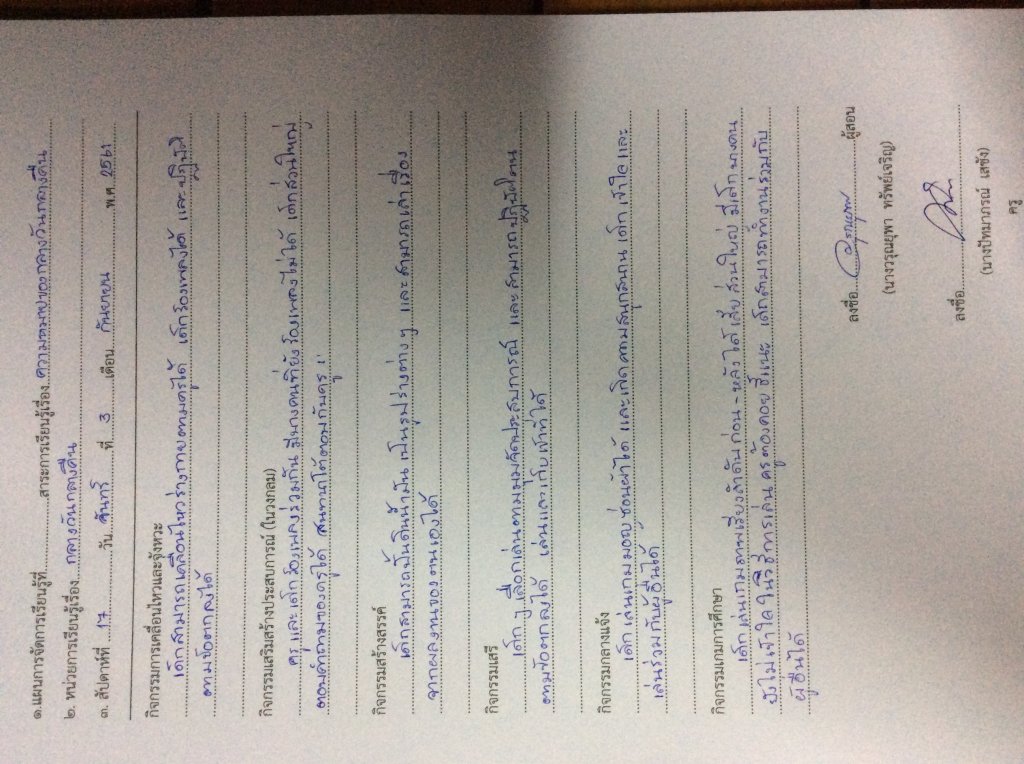 ๑.แผนการจัดการเรียนรู้ที่..........สาระการเรียนรู้เรื่อง ความหมายของกลางวันกลางคืน
๒. หน่วยการเรียนรู้เรื่อง กลางวันกลางคืน
๓. สัปดาห์ที่ 17 วัน จันทร์ ที่ 3 เดือน กันยายน พ.ศ 2561
กิจกรรมการเคลื่อนไหวและจังหวะ
เด็กสามารถเคลื่อนไหวร่างกายตามครูได้ เด็กร้องเพลงได้ และปฏิบัติ
ตามข้อตกลงได้
กิจกรรมเสริมสร้างประสบการณ์ (ในวงกลม)
ครูและเด็กร้องเพลงร่วมกัน มีบางคนที่ยังร้องเพลงไม่ได้ เด็กส่วนใหญ่
ตอบคำถามของครูได้ สนทนาโต้ตอบกับครูได้
กิจกรรมสร้างสรรค์
เด็กสามารถปั้นดินน้ำมัน เป็นรูปร่างต่าง ๆ และสามารถเล่าเรื่อง
จากผลงานของตนเองได้
กิจกรรมเสรี
เด็ก ๆ เลือกเล่นตามมุมจัดประสบการณ์ และสามารถปฏิบัติตน
ตามข้อตกลงได้ เล่นและเก็บเข้าที่ได้
กิจกรรมกลางแจ้ง
เด็ก เล่นเกมมอญซ่อนผ้าได้ และเกิดความสนุกสนาน เด็กเข้าใจและ
เล่นร่วมกับผู้อื่นได้
กิจกรรมเกมการศึกษา
เด็กเล่นเกมภาพเรียงลำดับก่อน - หลังได้ ส่วนใหญ่ มีเด็กบางคน
ยังไม่เข้าใจในวิธีการเล่น ครูต้องคอยชี้แนะ เด็กสามารถทำงานร่วมกับ
ผู้อื่นได้
ลงชื่อ วรุณยุพา ผู้สอน
(นางวรุณยุพา ทรัพย์เจริญ)
ลงชื่อ
(นางปัทมาภรณ์ เสซัง)
ครู